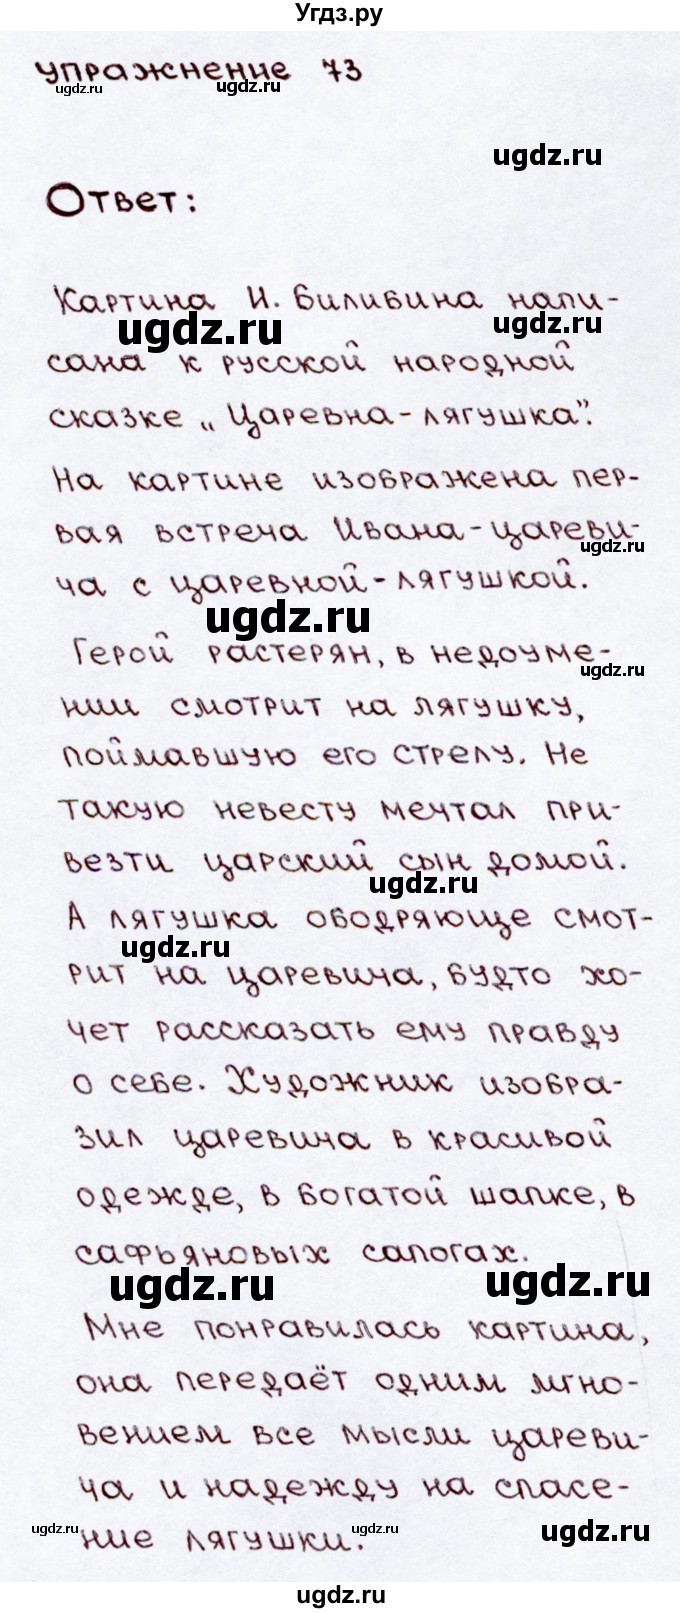 Угдз.ру
упражнение 73
ugdz.ru ugdz.ru
ugdz.ru
Ответ:
Картина И. Билибина напи-
ugdz.ru ugdz.ru
сана к русской народной
сказке „Царевна-лягушка”.
На картине изображена пер-
вая встреча Ивана-цареви-
ugdz.ru
ча с царевной-лягушкой.
ugdz.ru
Герой растерян, в недоуме-
ugdz.ru
нии смотрит на лягушку,
поймавшую его стрелу. Не
такую невесту мечтал при-
везти царский сын домой.
ugdz.ru
А лягушка ободряюще смот-
ugdz.ru
рит на царевича, будто хо-
чет рассказать ему правду
о себе. Художник изобра-
зил царевича в красивой
одежде, в богатой шапке, в
сафьяновых сапогах.
ugdz.ru ugdz.ru
Мне понравилась картина,
она передаёт одним мгно-
вением все мысли цареви-
ча и надежду на спасе-
ugdz.ru ugdz.ru ugdz.ru
ние лягушки.
ugdz.ru